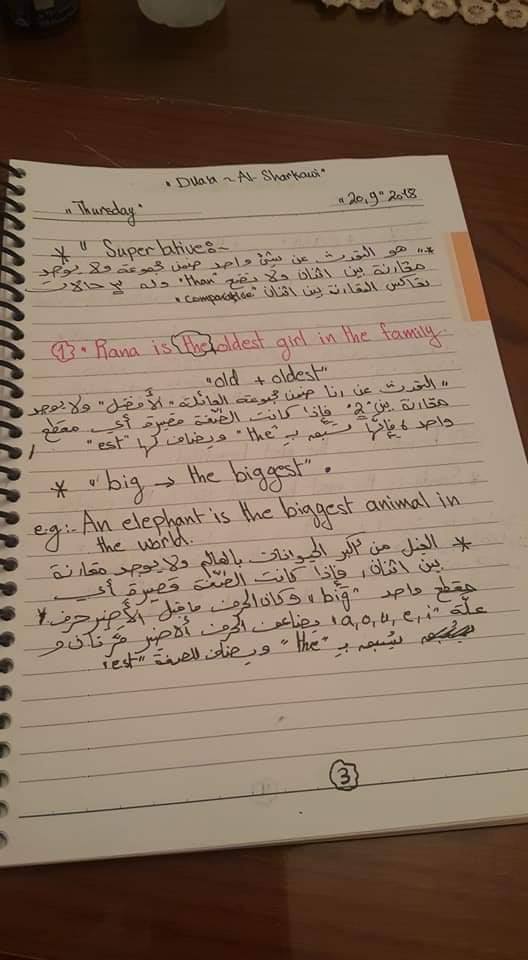 • Duaa ~ Al-Sharkawi •
"Thursday" "20,9" 2018
* " Superlative:~
" هو التحدث عن شئ واحد ضمن مجموعة ولا يوجد
مقارنة بين اثنان ولا نضع "than" وله ٣ حالات
بعاكس المقارنة بين اثنان "comparative"
① • Rana is the oldest girl in the family.
"old + oldest"
" التحدث عن رنا ضمن مجموعة العائلة "الأفضل" ولا يوجد
مقارنة بين "2" فإذا كانت الصّفة قصيرة أي مقطع
واحد، فإنّها نسبقه بـ "the" ويضاف لها "est" /
* "big → the biggest".
e.g:- An elephant is the biggest animal in
the world.
* الفيل من أكبر الحيوانات بالعالم ولا يوجد مقارنة
بين اثنان، فإذا كانت الصّفة قصيرة أي
مقطع واحد "big" وكان الحرف ماقبل الأخير حرف
علّة "a,o,u,e,i" يضاعف الحرف الأخير و
نسبقه بـ "the" ويضاف للصفة "est"
③